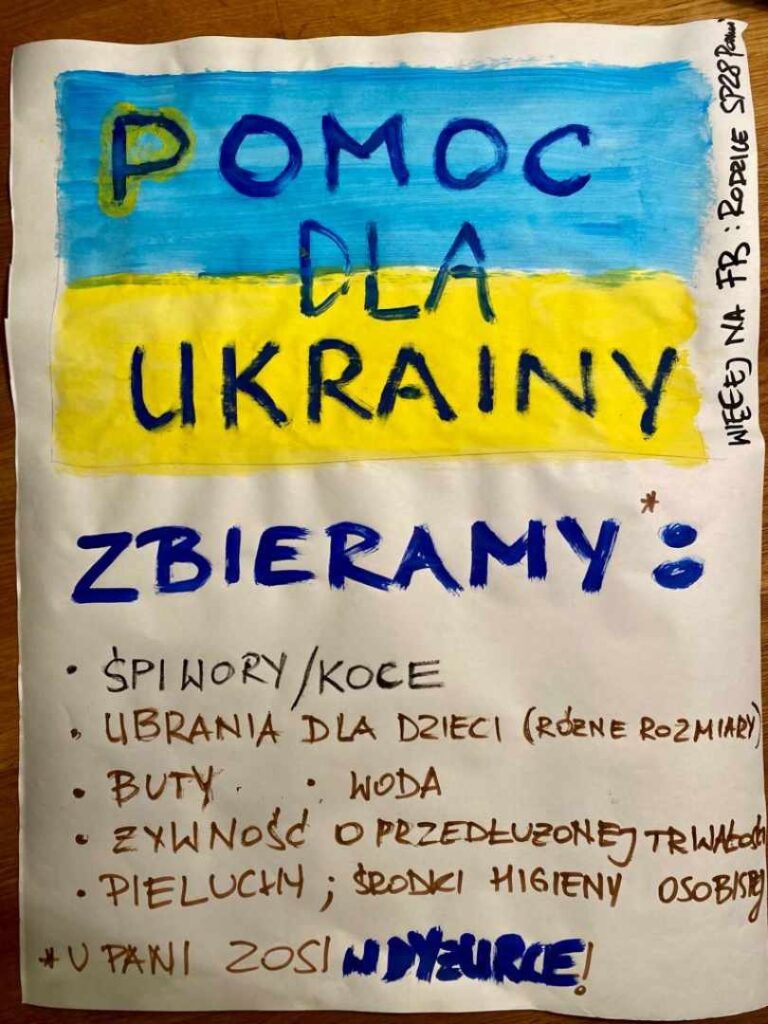 POMOC
DLA
UKRAINY
WIĘCEJ NA FB: RODZICE SP28
ZBIERAMY*:
• ŚPIWORY/KOCE
• UBRANIA DLA DZIECI (RÓŻNE ROZMIARY)
• BUTY • WODA
• ŻYWNOŚĆ O PRZEDŁUŻONEJ TRWAŁOŚCI
• PIELUCHY; ŚRODKI HIGIENY OSOBISTEJ
* U PANI ZOSI W DYŻURCE!